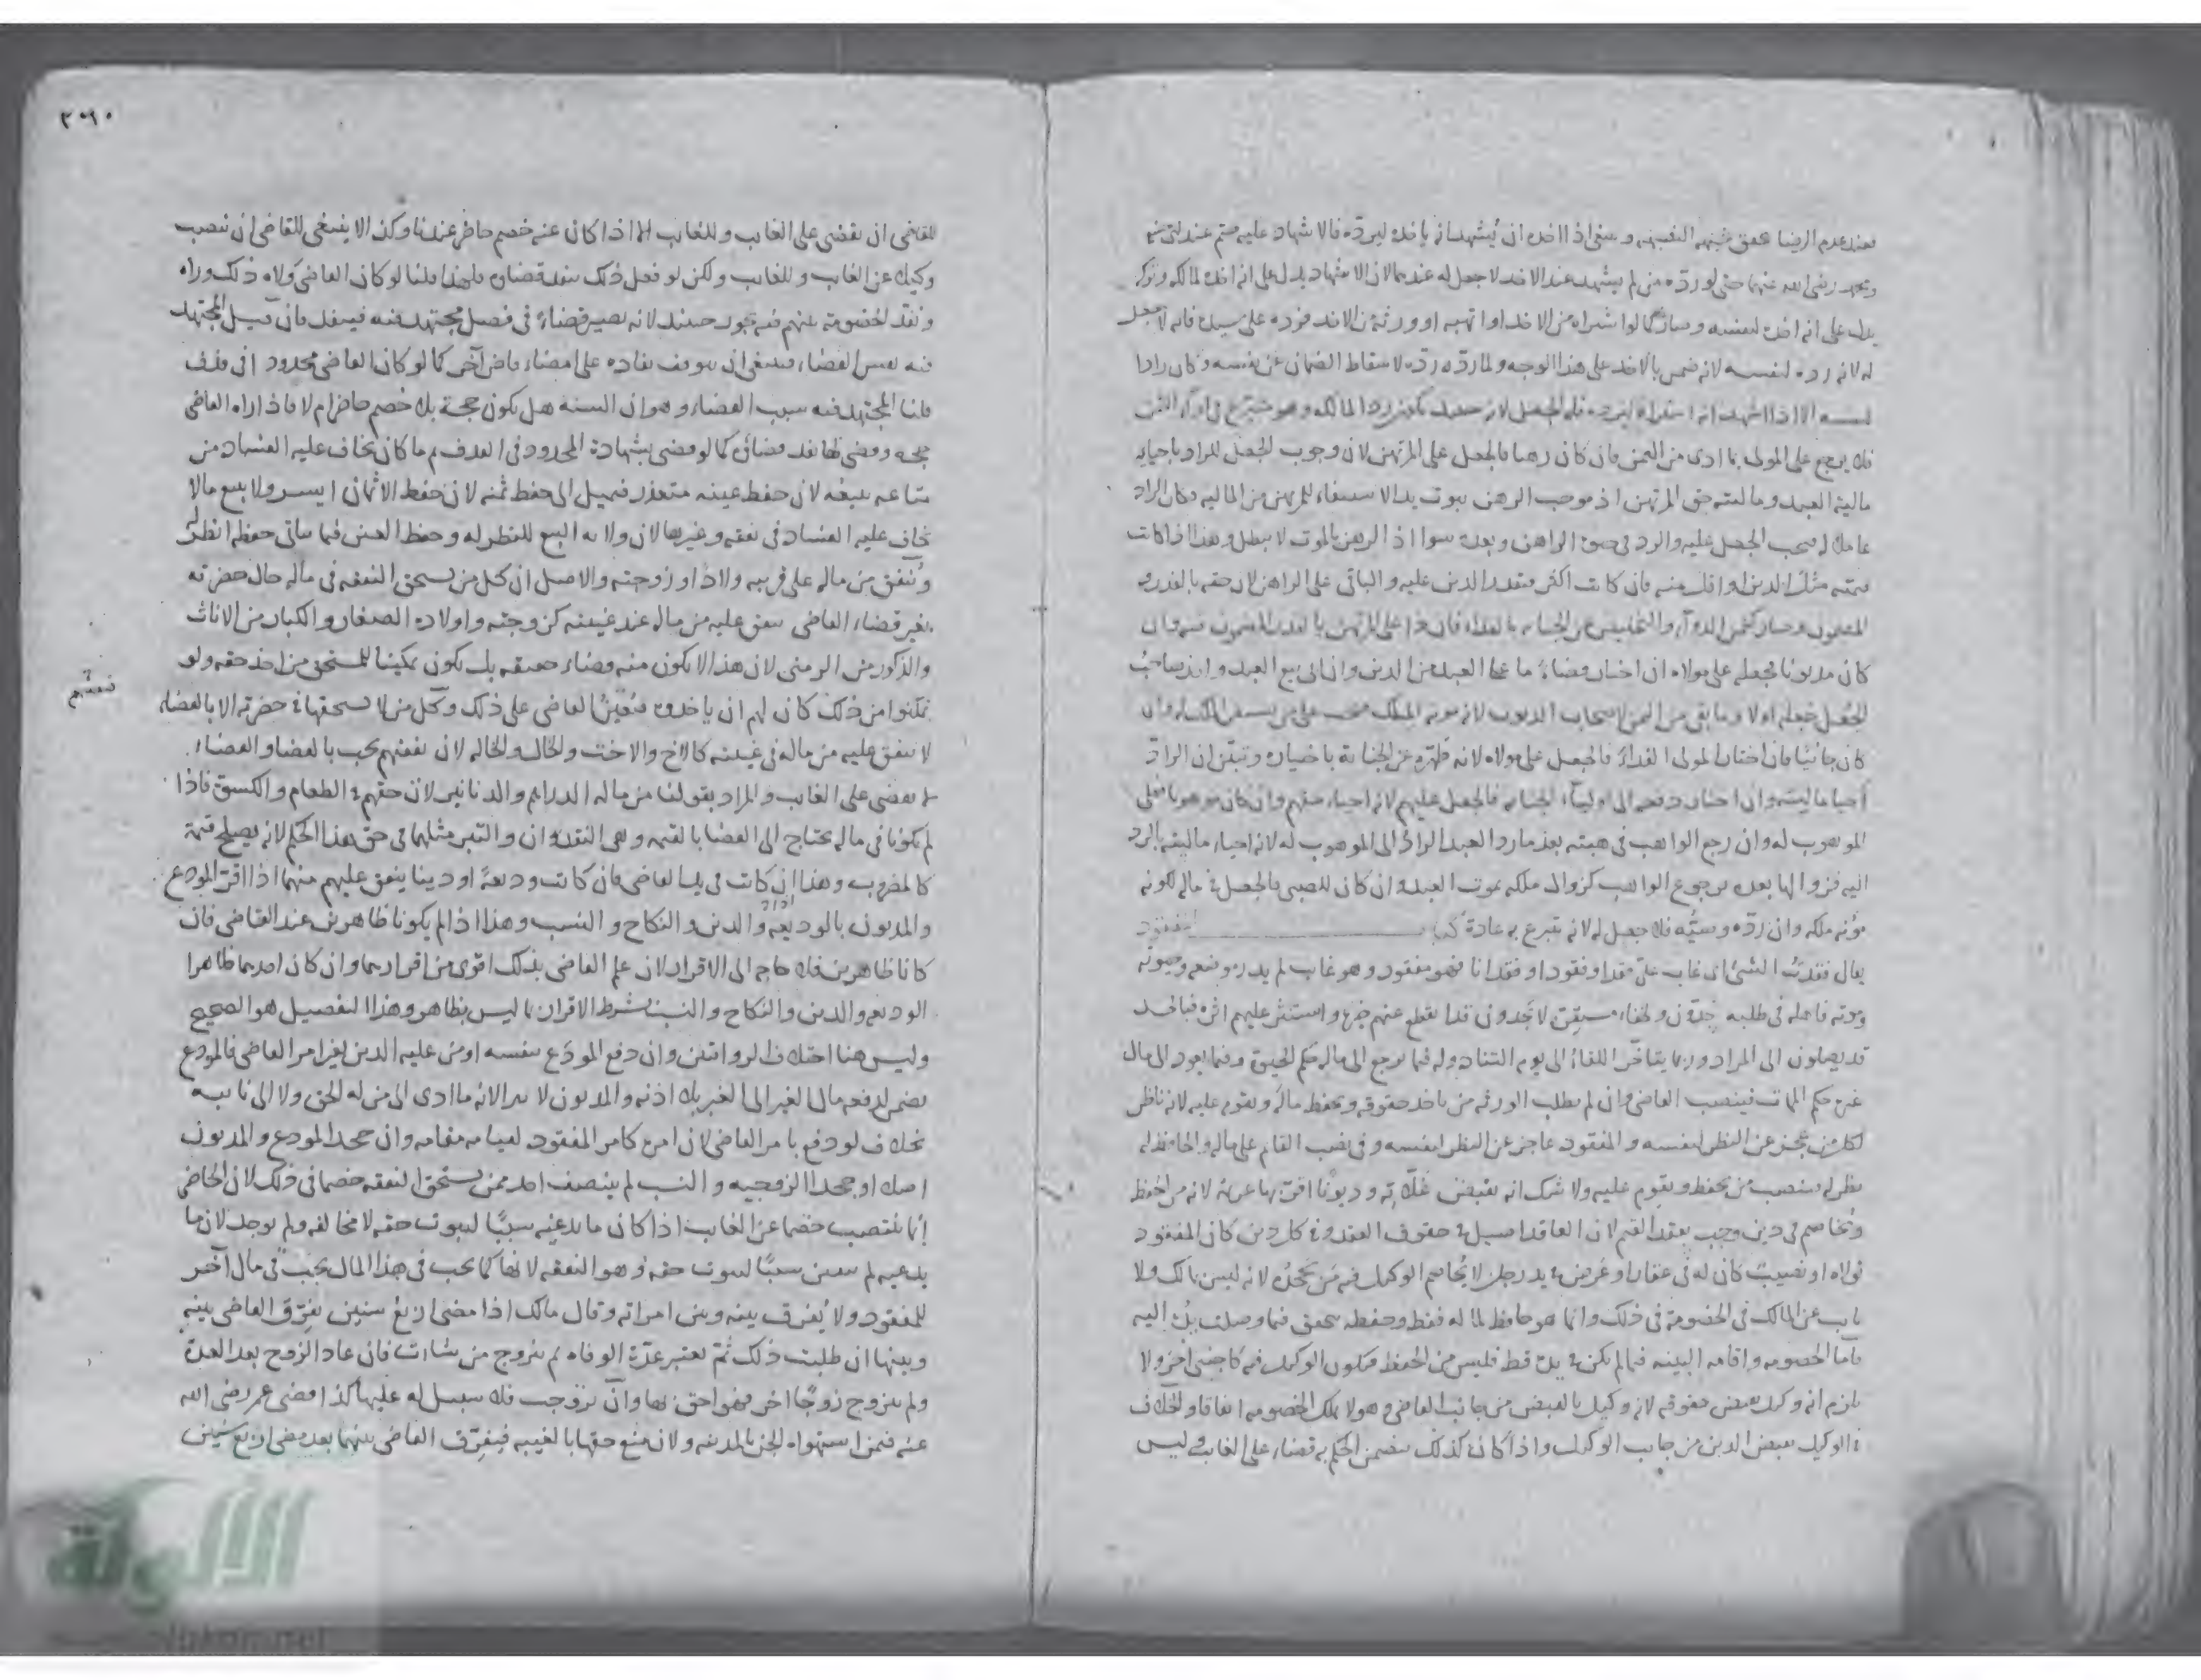 فعند عدم الرضا
ومحمد رضي الله عنهما حتى لو رده من لم يشهد عند الاخذ لا جعل له عندهما لان الاشهاد يدل على انه اخذه لمالكه وتركه
يدل على انه اخذه لنفسه وصار كما لو اشتراه من الاخذ او اتهبه او ورثه من الاخذ فرده على سيده فانه لا جعل
له لانه رده لنفسه لانه ضمن بالاخذ على هذا الوجه ولما رده رده لاسقاط الضمان عن نفسه وكان رادا
لنفسه الا اذا اشهد انه اشتراه ليرده فله الجعل لانه حينئذ يكون رد المالك وهو متبرع في اداء الثمن
فلا يرجع على المولى بما ادى من الثمن فان كان رهنا فالجعل على المرتهن لان وجوب الجعل للراد باحيائه
مالية العبد وماليته حق المرتهن اذ موجب الرهن ثبوت يد الاستيفاء للمرتهن من المالية وكان الراد
عاملا له فيجب الجعل عليه والرد في حيوة الراهن وبعده سوا اذ الرهن بالموت لا يبطل وهذا اذا كانت
قيمته مثل الدين او اقل منه فان كانت اكثر فبقدر الدين عليه والباقي على الراهن لان حقه بالقدر
المضمون وصار كثمن الدوآء والتخليص عن الجناية بالفداء فان على المرتهن بالقدر المضمون منه وان
كان مديونا فجعله على مولاه ان اختار قضاء ما على العبد من الدين وان ابى بيع العبد واخذ صاحب
الجعل جعله اولا وما بقي من الثمن لاصحاب الديون لانه مونة الملك فتجب على من يستقر الملك له وان
كان جانيا فان اختار المولى الفداء فالجعل على مولاه لانه طهره عن الجناية باختياره وتبين ان الراد
احيا ماليته وان اختار دفعه الى اوليآء الجناية فالجعل عليهم لانه احياء حقهم وان كان موهوبا فعلى
الموهوب له وان رجع الواهب في هبته بعد ما رد العبد الراد الى الموهوب له لانه احياء ماليته بالرد
اليه فزوالها بعده برجوع الواهب كزوال ملكه بموت العبد وان كان للصبي فالجعل في ماله لكونه
مؤنة ملكه وان رده وصيه فلا جعل له لانه تبرع به عادة كتاب المفقود
يقال فقدت الشئ اى غاب عني فقدا وفقودا وفقدانا فهو مفقود وهو غائب لم يدر موضعه وحيوته
وموته فاهله في طلبه يجدون ولخفاء مستقره لا يجدون قد انقطع عنهم خبره واستتر عليهم اثره فبالجد
قد يصلون الى المراد وربما يتاخر اللقاء الى يوم التناد وله فيما يرجع الى ماله حكم الحيوة وفيما يعود الى مال
غيره حكم الممات فينصب القاضي وان لم يطلب الورثة من ياخذ حقوقه ويحفظ ماله ويقوم عليه لانه ناظر
لكل من عجز عن النظر لنفسه والمفقود عاجز عن النظر لنفسه وفي نصب القائم على ماله والحافظ له
نظر له فينصب من يحفظ ويقوم عليه ولا شك انه يقبض غلاته وديونا اقر بها غرماؤه لانه من الحفظ
ويخاصم في دين وجب بعقد القيم لان العاقد اصيل في حقوق العقد وفي كل دين كان المفقود
تولاه او نصيب كان له في عقار او عرض في يد رجل لا يخاصم الوكيل فيه من يجحده لانه ليس بمالك ولا
نايب عن المالك في الخصومة في ذلك وانما هو حافظ لماله فقط وحفظه يتحقق فيما وصلت يده اليه
فاما الخصومة واقامة البينة فيما لم يكن في يده قط فليس من الحفظ فيكون الوكيل فيه كاجنبي آخر ولا
يلزم انه وكيل بقبض حقوقه لانه وكيل بالقبض من جانب القاضي وهو لا يملك الخصومة اتفاقا والخلاف
في الوكيل بقبض الدين من جانب الوكيل واذا كان كذلك يتضمن الحكم به قضاء على الغائب وليس
٣٠٩٠
للقاضي ان يقضي على الغايب وللغايب الا اذا كان عنه خصم حاضر عندنا وكذا لا ينبغي للقاضي ان ينصب
وكيلا عن الغايب وللغايب ولكن لو فعل ذلك ينفذ قضاؤه فلهذا قلنا لو كان القاضي ولاه ذلك وراه
ونفذ الخصومة بينهم فيه يجوز حينئذ لانه يصير قضاء في فصل مجتهد فيه فينفذ فان قيل المجتهد
فيه نفس القضاء فينبغي ان يتوقف نفاذه على امضاء قاض آخر كما لو كان القاضي محدودا في قذف
قلنا المجتهد فيه سبب القضاء وهو ان البينة هل يكون حجة بلا خصم حاضر ام لا فاذا راه القاضي
حجة وقضى بها نفذ قضاؤه كما لو قضى بشهادة المحدود في القذف ثم ما كان يخاف عليه الفساد من
متاعه يبيعه لان حفظ عينه متعذر فيميل الى حفظ ثمنه لان حفظ الاثمان ايسر ولا يبيع ما لا
يخاف عليه الفساد في نفقة وغيرها لان ولاية البيع للنظر له وحفظ العين فيما يتأتى حفظه انظر له
وينفق من ماله على قريبه ولادا وزوجته والاصل ان كل من يستحق النفقة في ماله حال حضرته
بغير قضاء القاضي ينفق عليه من ماله عند غيبته كزوجته واولاده الصغار والكبار من الاناث
والذكور من الزمنى لان هذا لا يكون منه قضاء حقيقة بل يكون تمكينا للمستحق من اخذ حقه ولو
تمكنوا من ذلك كان لهم ان ياخذوه فيعين القاضي على ذلك وكل من لا يستحقها في حضرته الا بالقضاء
نفقتهم
لا ينفق عليه من ماله في غيبته كالاخ والاخت والخال والخالة لان نفقتهم يجب بالقضا والقضاء
لا يقضى على الغايب والمراد بقولنا من ماله الدراهم والدنانير لان حقهم في الطعام والكسوة فاذا
لم يكونا في ماله يحتاج الى القضا بالقيمة وهي النقدان والتبر مثلهما في حق هذا الحكم لانه يصلح قيمة
كالمضروب وهذا ان كانت في يد القاضي فان كانت وديعة او دينا ينفق عليهم منهما اذا اقر المودع
والمديون بالوديعة والدين والنكاح والنسب وهذا اذا لم يكونا ظاهرين عند القاضي فان
كانا ظاهرين فلا حاجة الى الاقرار لان علم القاضي بذلك اقوى من اقرارهما وان كان احدهما ظاهرا
الوديعة والدين والنكاح والنسب يشترط الاقرار بما ليس بظاهر وهذا التفصيل هو الصحيح
وليس هنا اختلاف الروايتين وان دفع المودع بنفسه او من عليه الدين بغير امر القاضي فالمودع
يضمن لدفعه مال الغير الى الغير بلا اذنه والمديون لا يبرا لانه ما ادى الى من له الحق ولا الى نايبه
بخلاف لو دفع بامر القاضي لان امره كامر المفقود لقيامه مقامه وان جحد المودع والمديون
اصلا او جحدا الزوجية والنسب لم ينتصب احد ممن يستحق النفقة خصما في ذلك لان الحاضر
انما ينتصب خصما عن الغايب اذا كان ما يدعيه سببا لثبوت حقه لا محالة ولم يوجد لان ما
يدعيه لم يتعين سببا لثبوت حقه وهو النفقة لانها كما يجب في هذا المال يجب في مال آخر
للمفقود ولا يفرق بينه وبين امراته وقال مالك اذا مضى اربع سنين يفرق القاضي بينه
وبينها ان طلبت ذلك ثم تعتبر عدة الوفاة ثم يتزوج من شاءت فان عاد الزوج بعد العدة
ولم يتزوج زوجا اخر فهو احق بها وان تزوجت فلا سبيل له عليها كذا قضى عمر رضي الله
عنه فيمن استهواه الجن بالمدينة ولانه منع حقها بالغيبة فيفرق القاضي بينهما بعد مضي اربع سنين
الألوكة